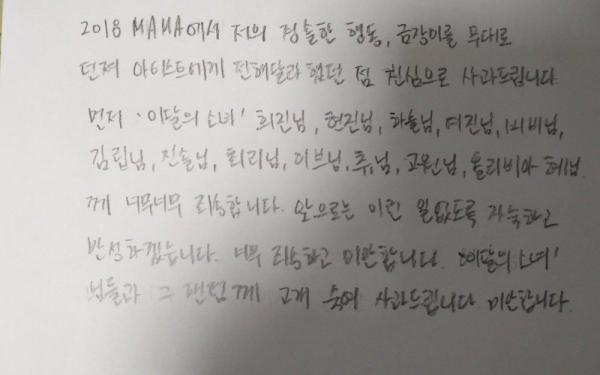 2018 MAMA에서 저의 경솔한 행동, 금장미를 무대로
던져 아티스트에게 전해달라 했던 점 진심으로 사과드립니다.
먼저 '이달의 소녀' 희진님, 현진님, 하슬님, 여진님, 비비님,
김립님, 진솔님, 최리님, 이브님, 츄님, 고원님, 올리비아 혜님
께 너무너무 죄송합니다. 앞으로는 이런 일없도록 자숙하고
반성하겠습니다. 너무 죄송하고 미안합니다. '이달의 소녀'
님들과 그 팬덤께 고개 숙여 사과드립니다 미안합니다.